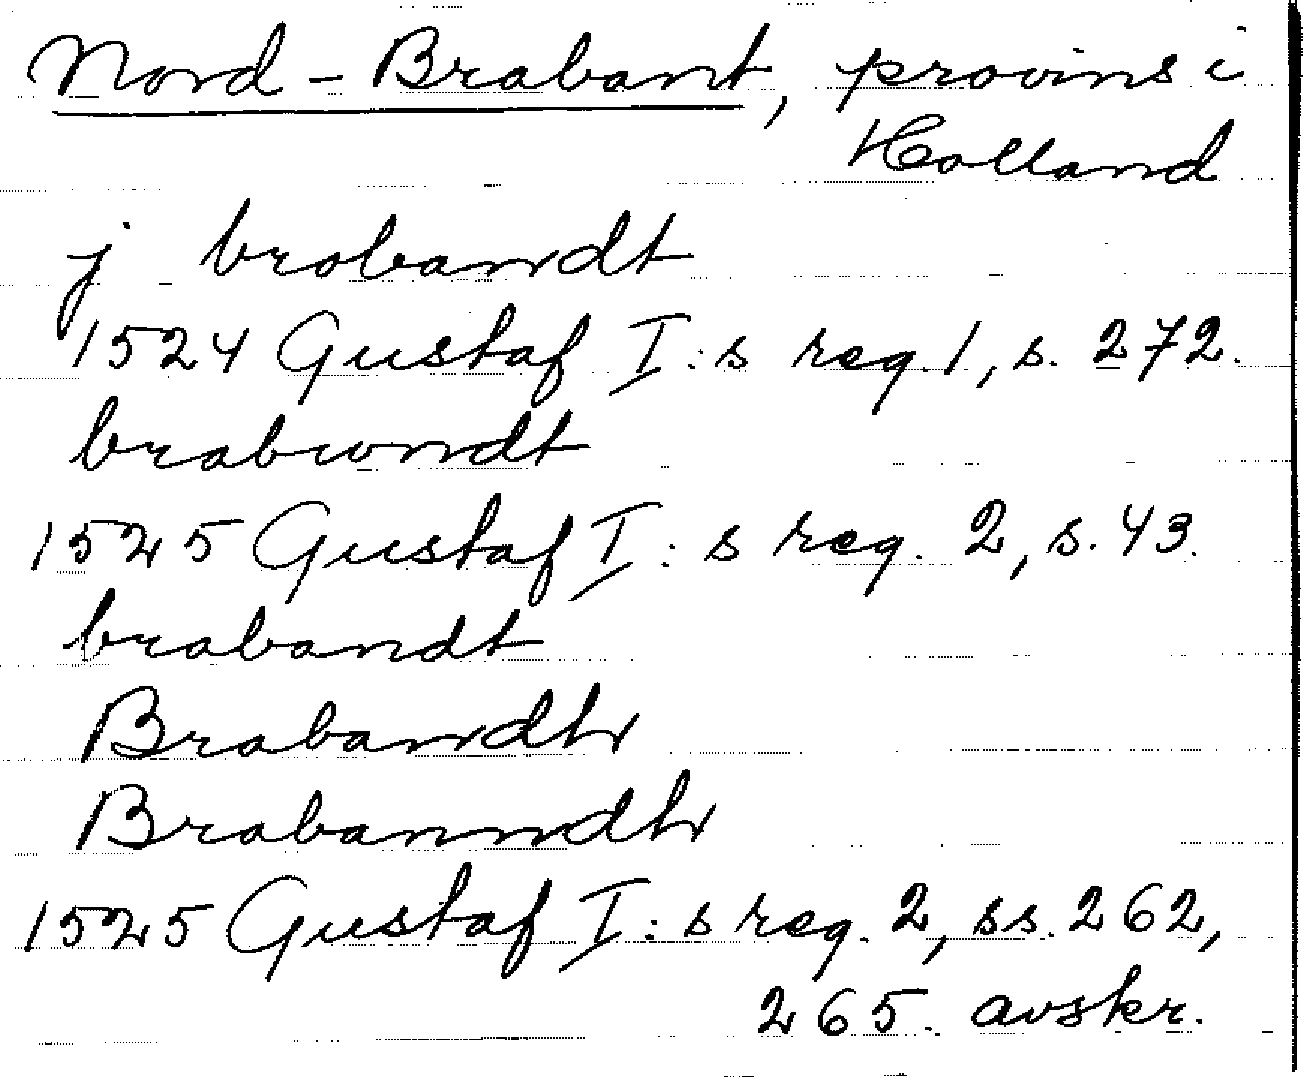 Nord-Brabant, provins i
Holland
j brabandt
1524 Gustaf I:s reg. 1, s. 272.
brabwndt
1525 Gustaf I:s reg. 2, s. 43.
brabandt
Brabandh
Brabanndh
1525 Gustaf I:s reg. 2, ss. 262,
265. avskr.